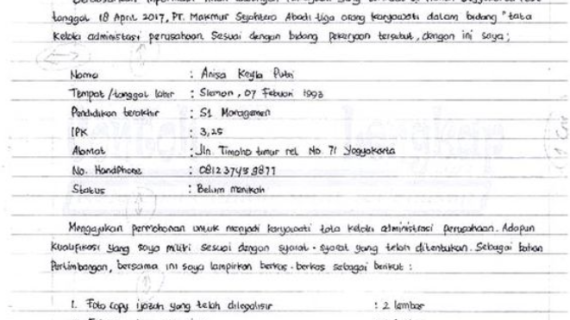 tanggal 18 April 2017, PT. Makmur Sejahtera Abadi tiga orang karyawati dalam bidang "tata
kelola administrasi perusahaan. Sesuai dengan bidang pekerjaan tersebut, dengan ini saya;
Nama : Anisa Keyla Putri
Tempat/tanggal lahir : Sleman, 07 Februari 1993
Pendidikan terakhir : S1 Manajemen
IPK : 3,25
Alamat : Jln. Timoho timur rel No. 71 Yogyakarta
No. Handphone : 081237459877
Status : Belum menikah
Mengajukan permohonan untuk menjadi karyawati tata kelola administrasi perusahaan. Adapun
kualifikasi yang saya miliki sesuai dengan syarat-syarat yang telah ditentukan. Sebagai bahan
Pertimbangan, bersama ini saya lampirkan berkas-berkas sebagai berikut :
1. Foto copy ijazah yang telah dilegalisir : 2 lembar